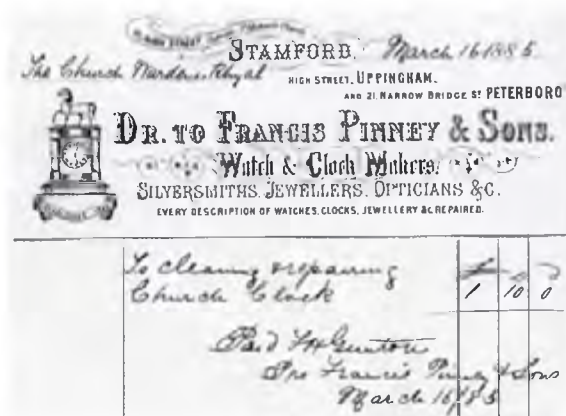 STAMFORD. March 16 1885
The Church Wardens Ryhal
HIGH STREET, UPPINGHAM.
AND 21, NARROW BRIDGE ST PETERBORO
DR. TO FRANCIS PINNEY & SONS.
Watch & Clock Makers,
SILVERSMITHS, JEWELLERS, OPTICIANS &C.
EVERY DESCRIPTION OF WATCHES, CLOCKS, JEWELLERY &C REPAIRED.
To cleaning & repairing
Church Clock 1 10 0
Paid
Pro Francis Pinney & Sons
March 16/85